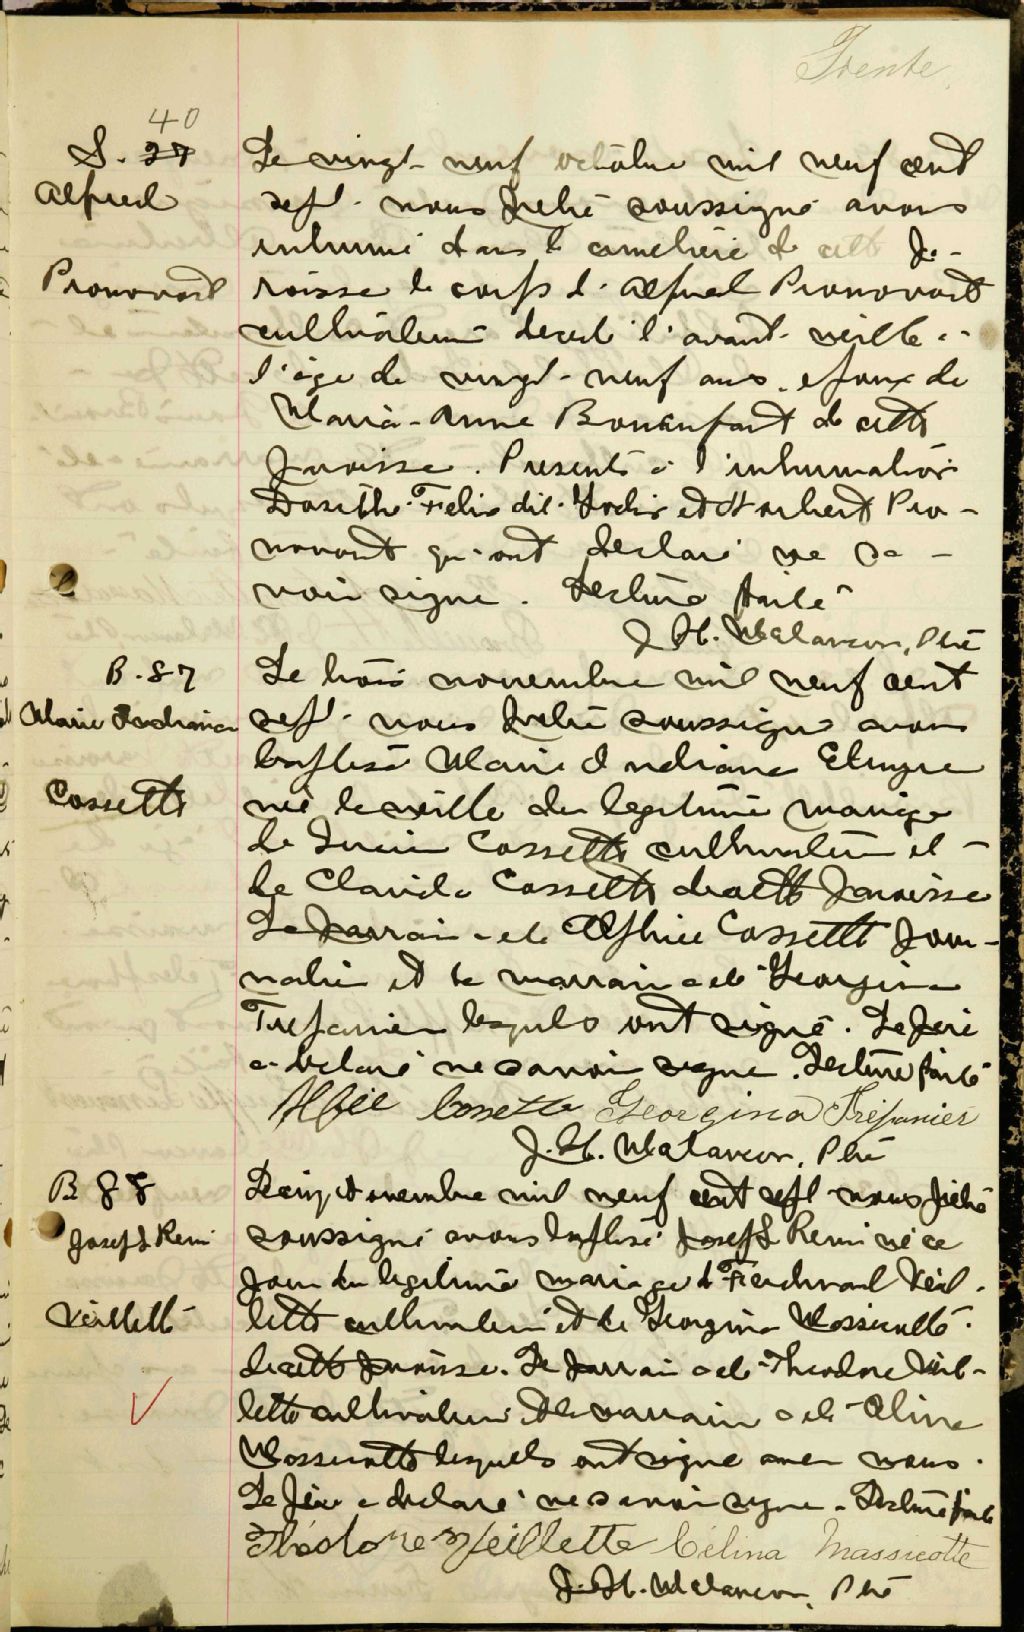 Trente
40
S. 27
Alfred
Pronovost
Le vingt-neuf octobre mil neuf cent
sept nous Prêtre soussigné avons
inhumé dans le cimetière de cette Pa-
roisse le corps d'Alfred Pronovost
cultivateur decedé l'avant-veille à
l'âge de vingt-neuf ans, epoux de
Maria-Anne Bonenfant de cette
Paroisse. Presents à l'inhumation
Dosithé Felix dit et Norbert Pro-
novost qui ont declaré ne sa-
voir signer. Lecture faite
J. H. Melançon, Ptre
B. 87
Marie Indiana
Cossette
Le trois novembre mil neuf cent
sept nous Prêtre soussigné avons
baptisé Marie Indiana
née la veille du legitime mariage
de Cossette cultivateur et
de Claudia Cossette de cette Paroisse
Le Parrain a été Alphée Cossette jour-
nalier et la marraine a été Georgina
Trepanier lesquels ont signé. Le Père
a declaré ne savoir signer. Lecture faite
Alfée Cossette Georgina Trépanier
J. H. Melançon, Ptre
B 88
Joseph Remi
Veillette
Le cinq novembre mil neuf cent sept nous Prêtre
soussigné avons baptisé Joseph Remi né ce
jour du legitime mariage de Ferdinand Veil-
lette cultivateur et de Georgina Massicotte
de cette Paroisse. Le Parrain a été Theodore Veil-
lette cultivateur et la marraine a été Celina
Massicotte lesquels ont signé avec nous.
Le Père a declaré ne savoir signer. Lecture faite
Théodore Veillette Célina Massicotte
J. H. Melançon, Ptre